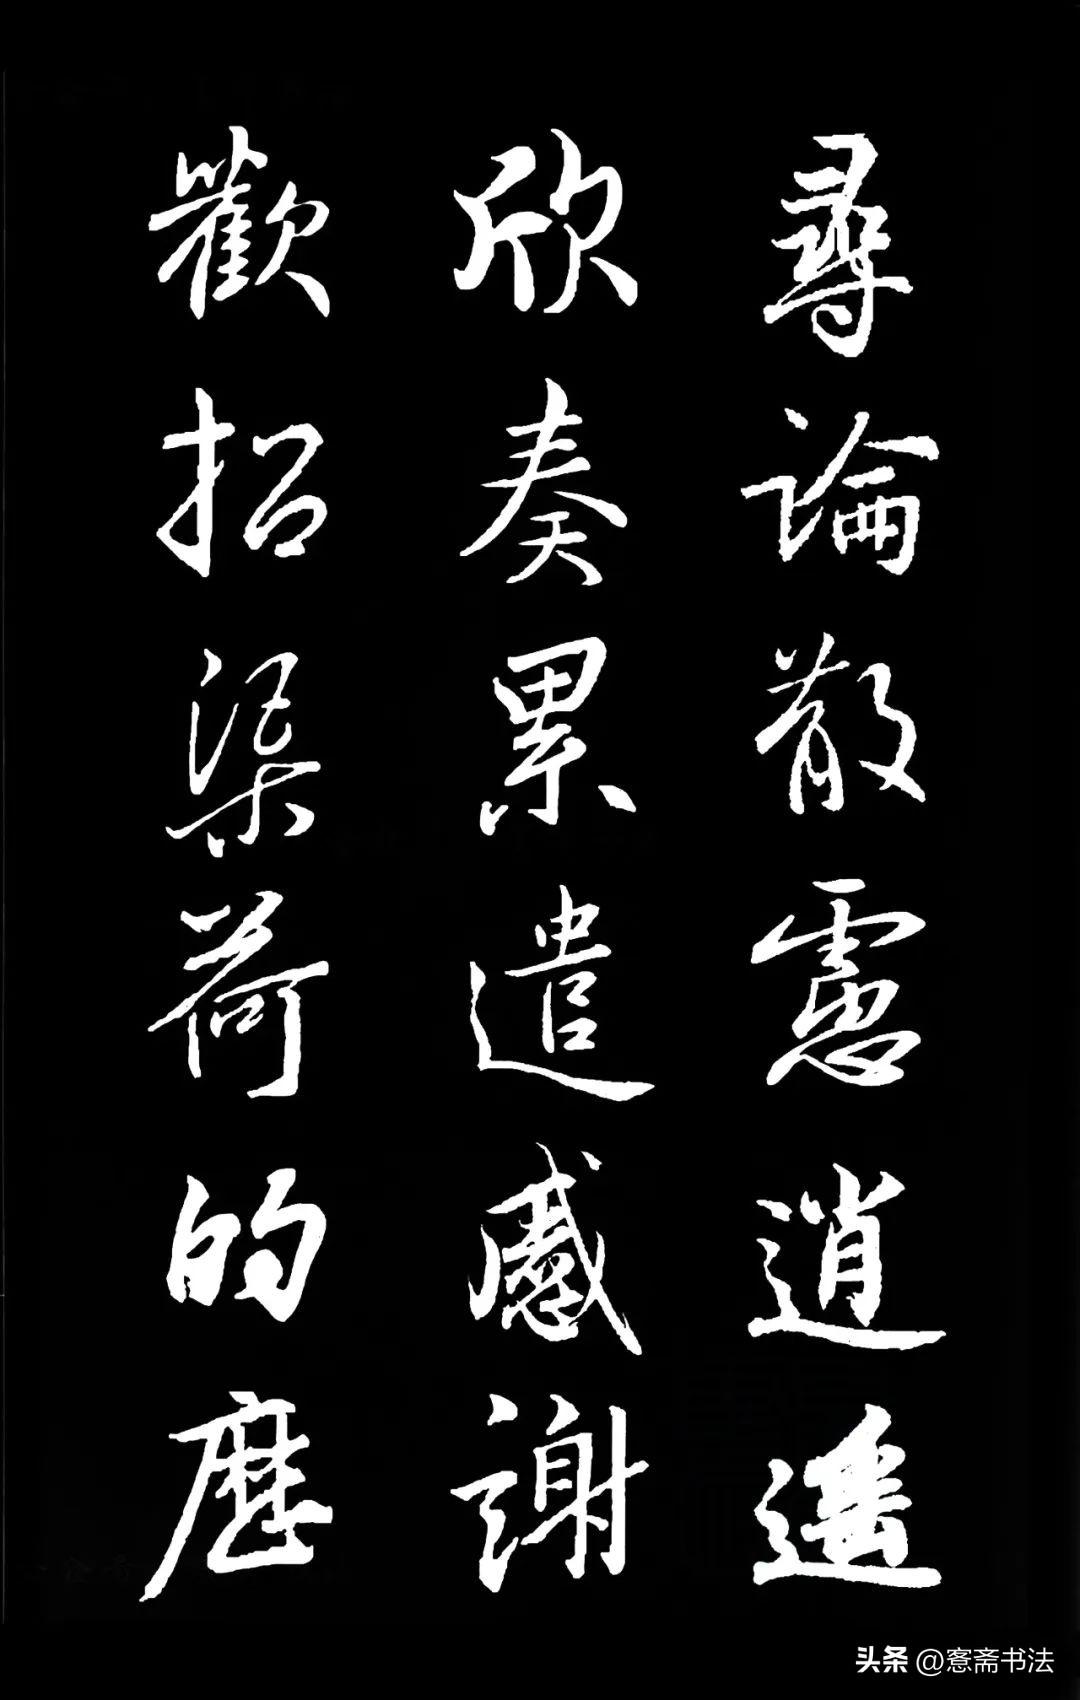 尋論散慮逍遥
欣奏累遣慼謝
歡招渠荷的歷
头条@窓斋书法